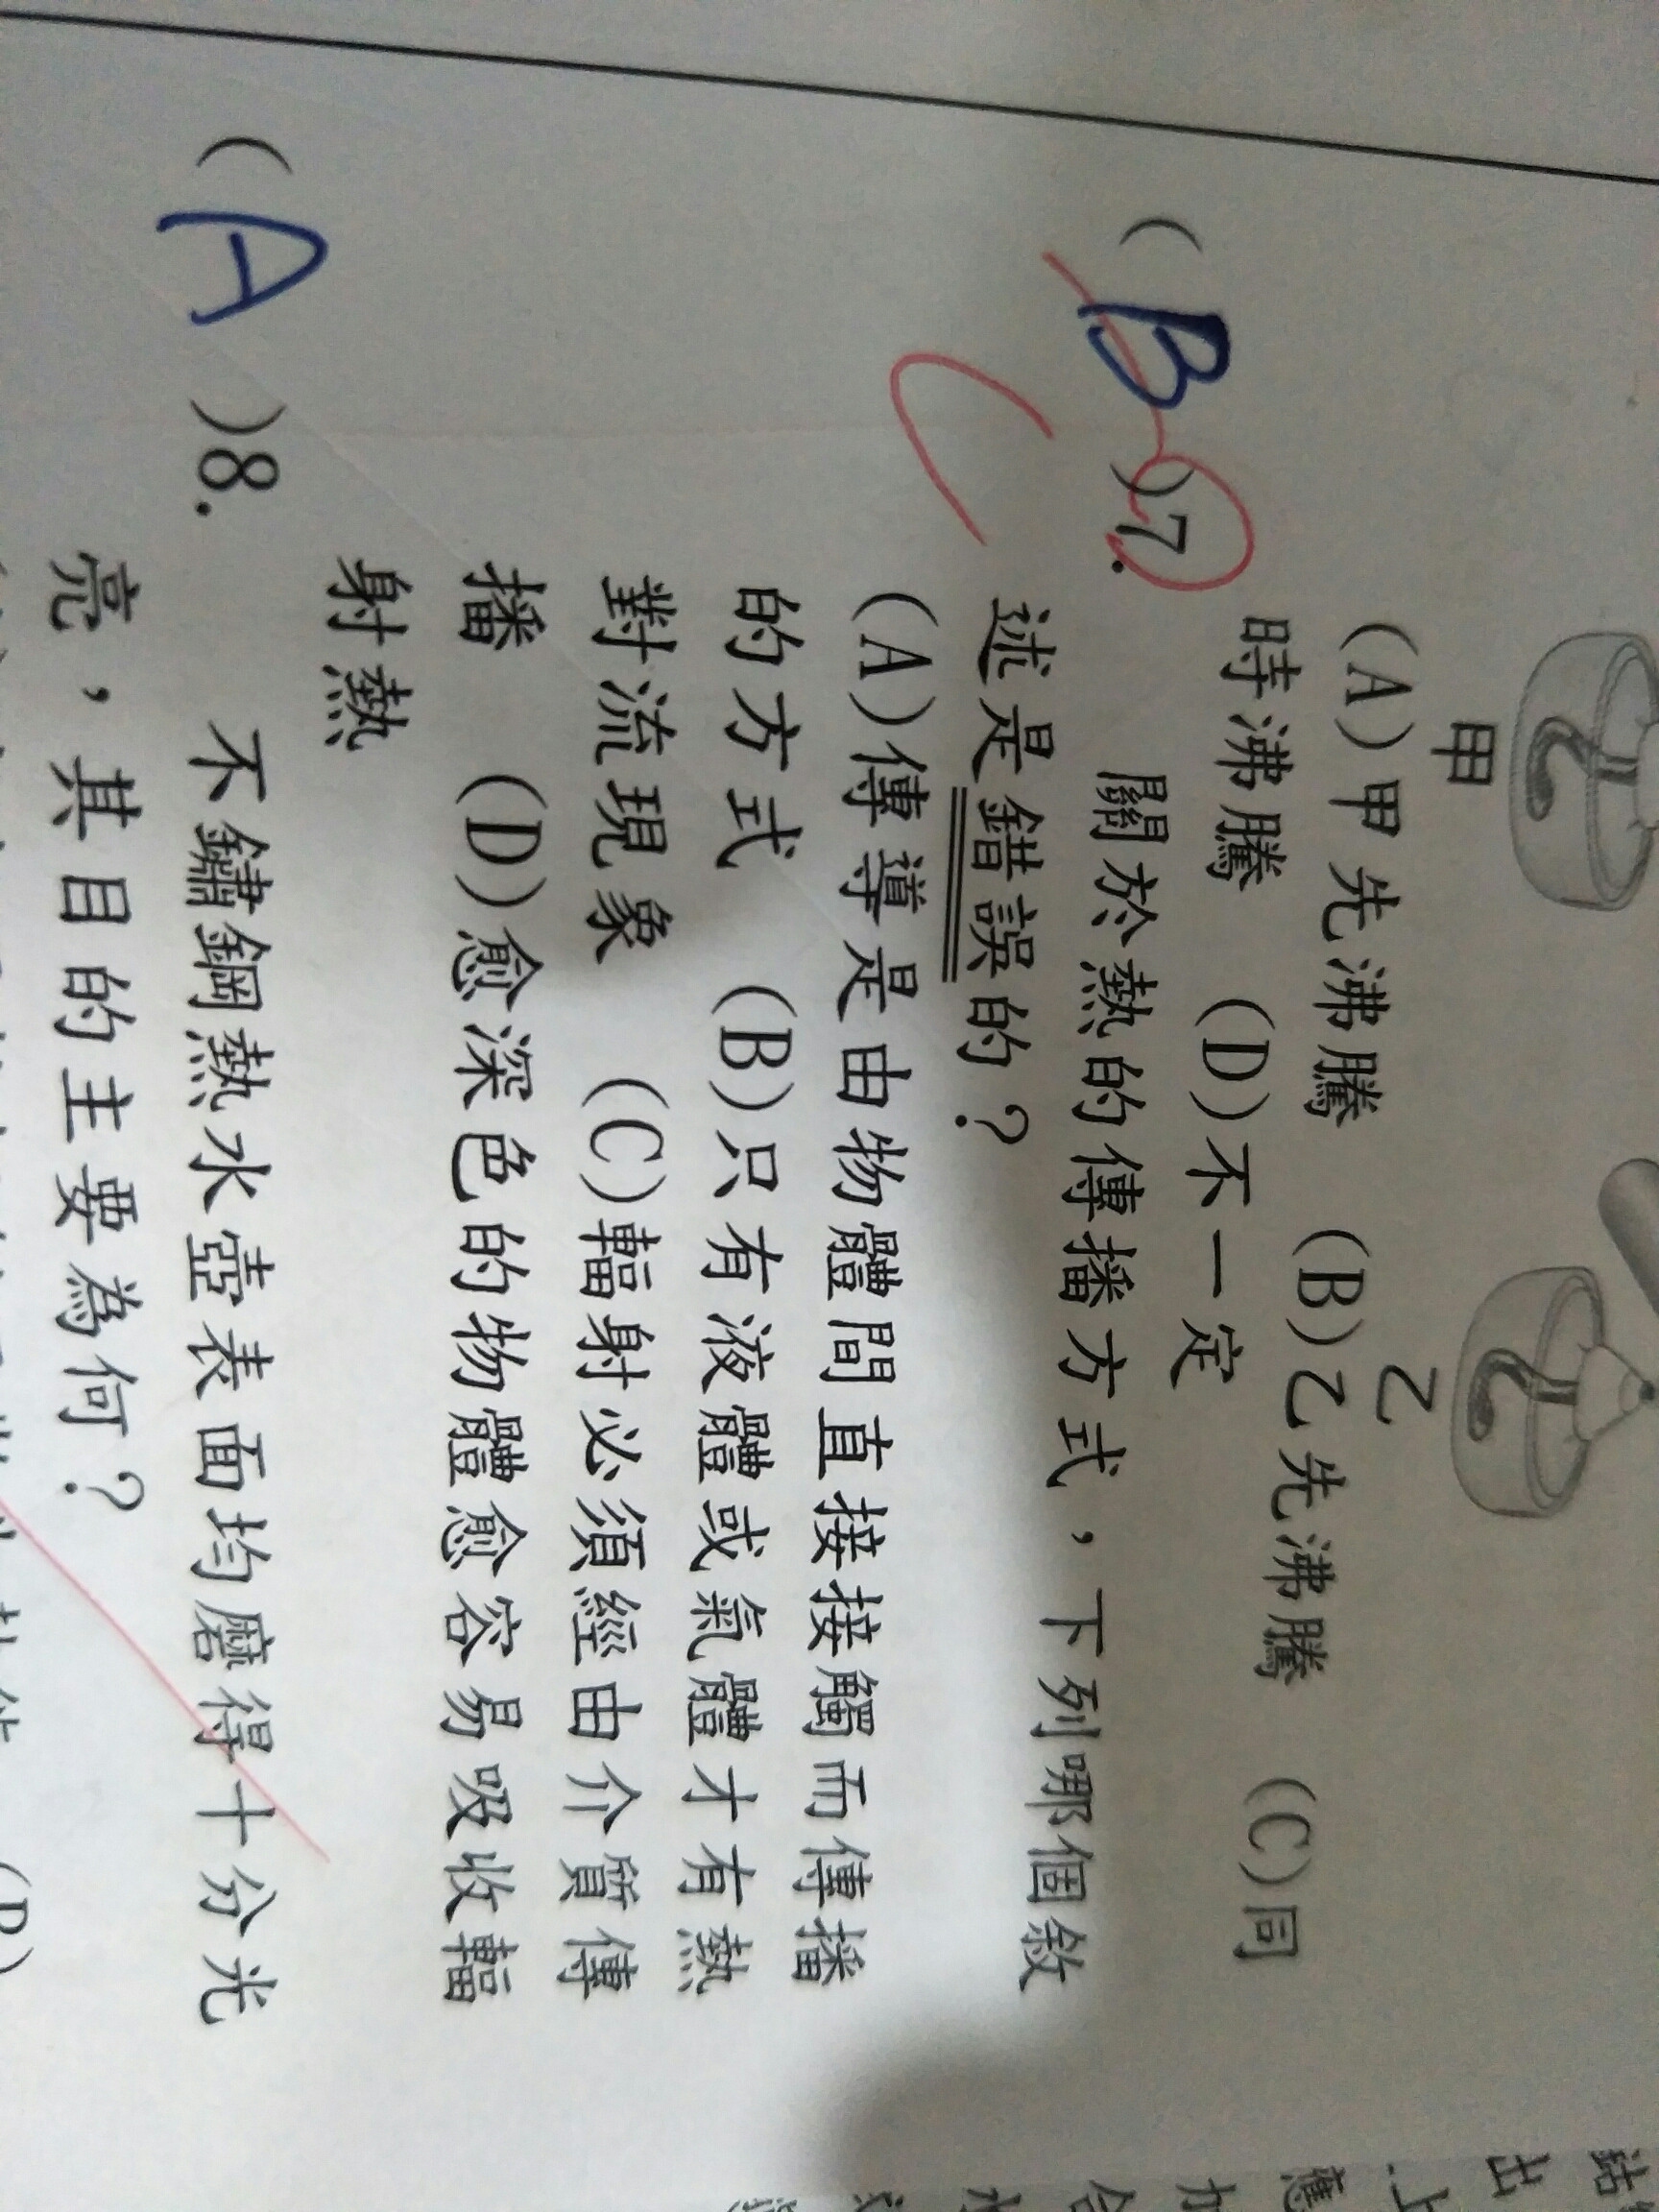 甲
乙
(A)甲先沸騰 (B)乙先沸騰 (C)同
時沸騰 (D)不一定
(B)7. 關於熱的傳播方式，下列哪個敘
述是錯誤的？
C
(A)傳導是由物體間直接接觸而傳播
的方式 (B)只有液體或氣體才有熱
對流現象 (C)輻射必須經由介質傳
播 (D)愈深色的物體愈容易吸收輻
射熱
(A)8. 不鏽鋼熱水壺表面均磨得十分光
亮，其目的主要為何？
(B)